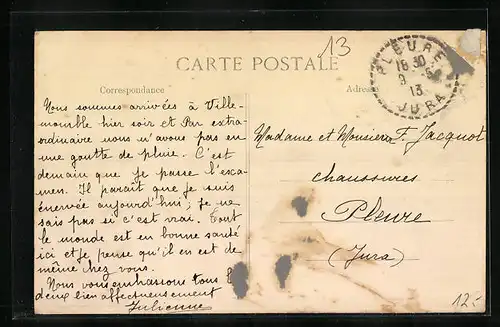 13
CARTE POSTALE
Correspondance
Adresse
PLEURE
16 30
9 -5
13
JURA
Nous sommes arrivées à Ville-
momble hier soir et Par extra-
ordinaire nous n'avons pas eu
une goutte de pluie. C'est
demain que je passe l'exa-
men. Il paraît que je suis
énervée aujourd'hui; je ne
sais pas si c'est vrai. Tout
le monde est en bonne santé
ici et je pense qu'il en est de
même chez vous.
Nous vous embrassons tous
deux bien affectueusement
Julienne
Madame et Monsieur F. Jacquot
chaussures
Pleure
(Jura)
12-